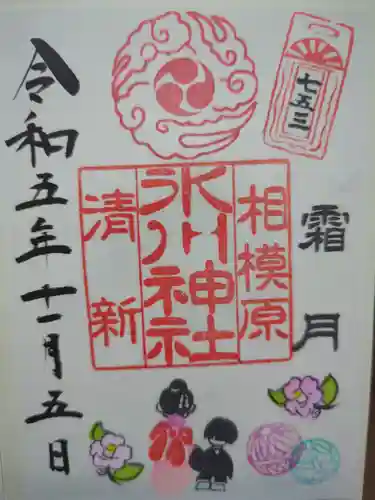 七五三
霜月
相模原
氷川神社
清新
令和五年十一月五日